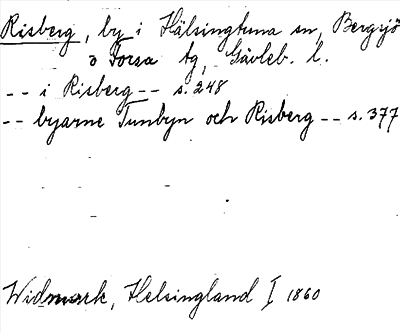 Risberg, by i Hälsingtuna sn, Bergsjö
o Forsa tg, Gävleb. l.
-- i Risberg -- s. 248
-- byarne Tunbyn och Risberg -- s. 377
Widmark, Helsingland I 1860